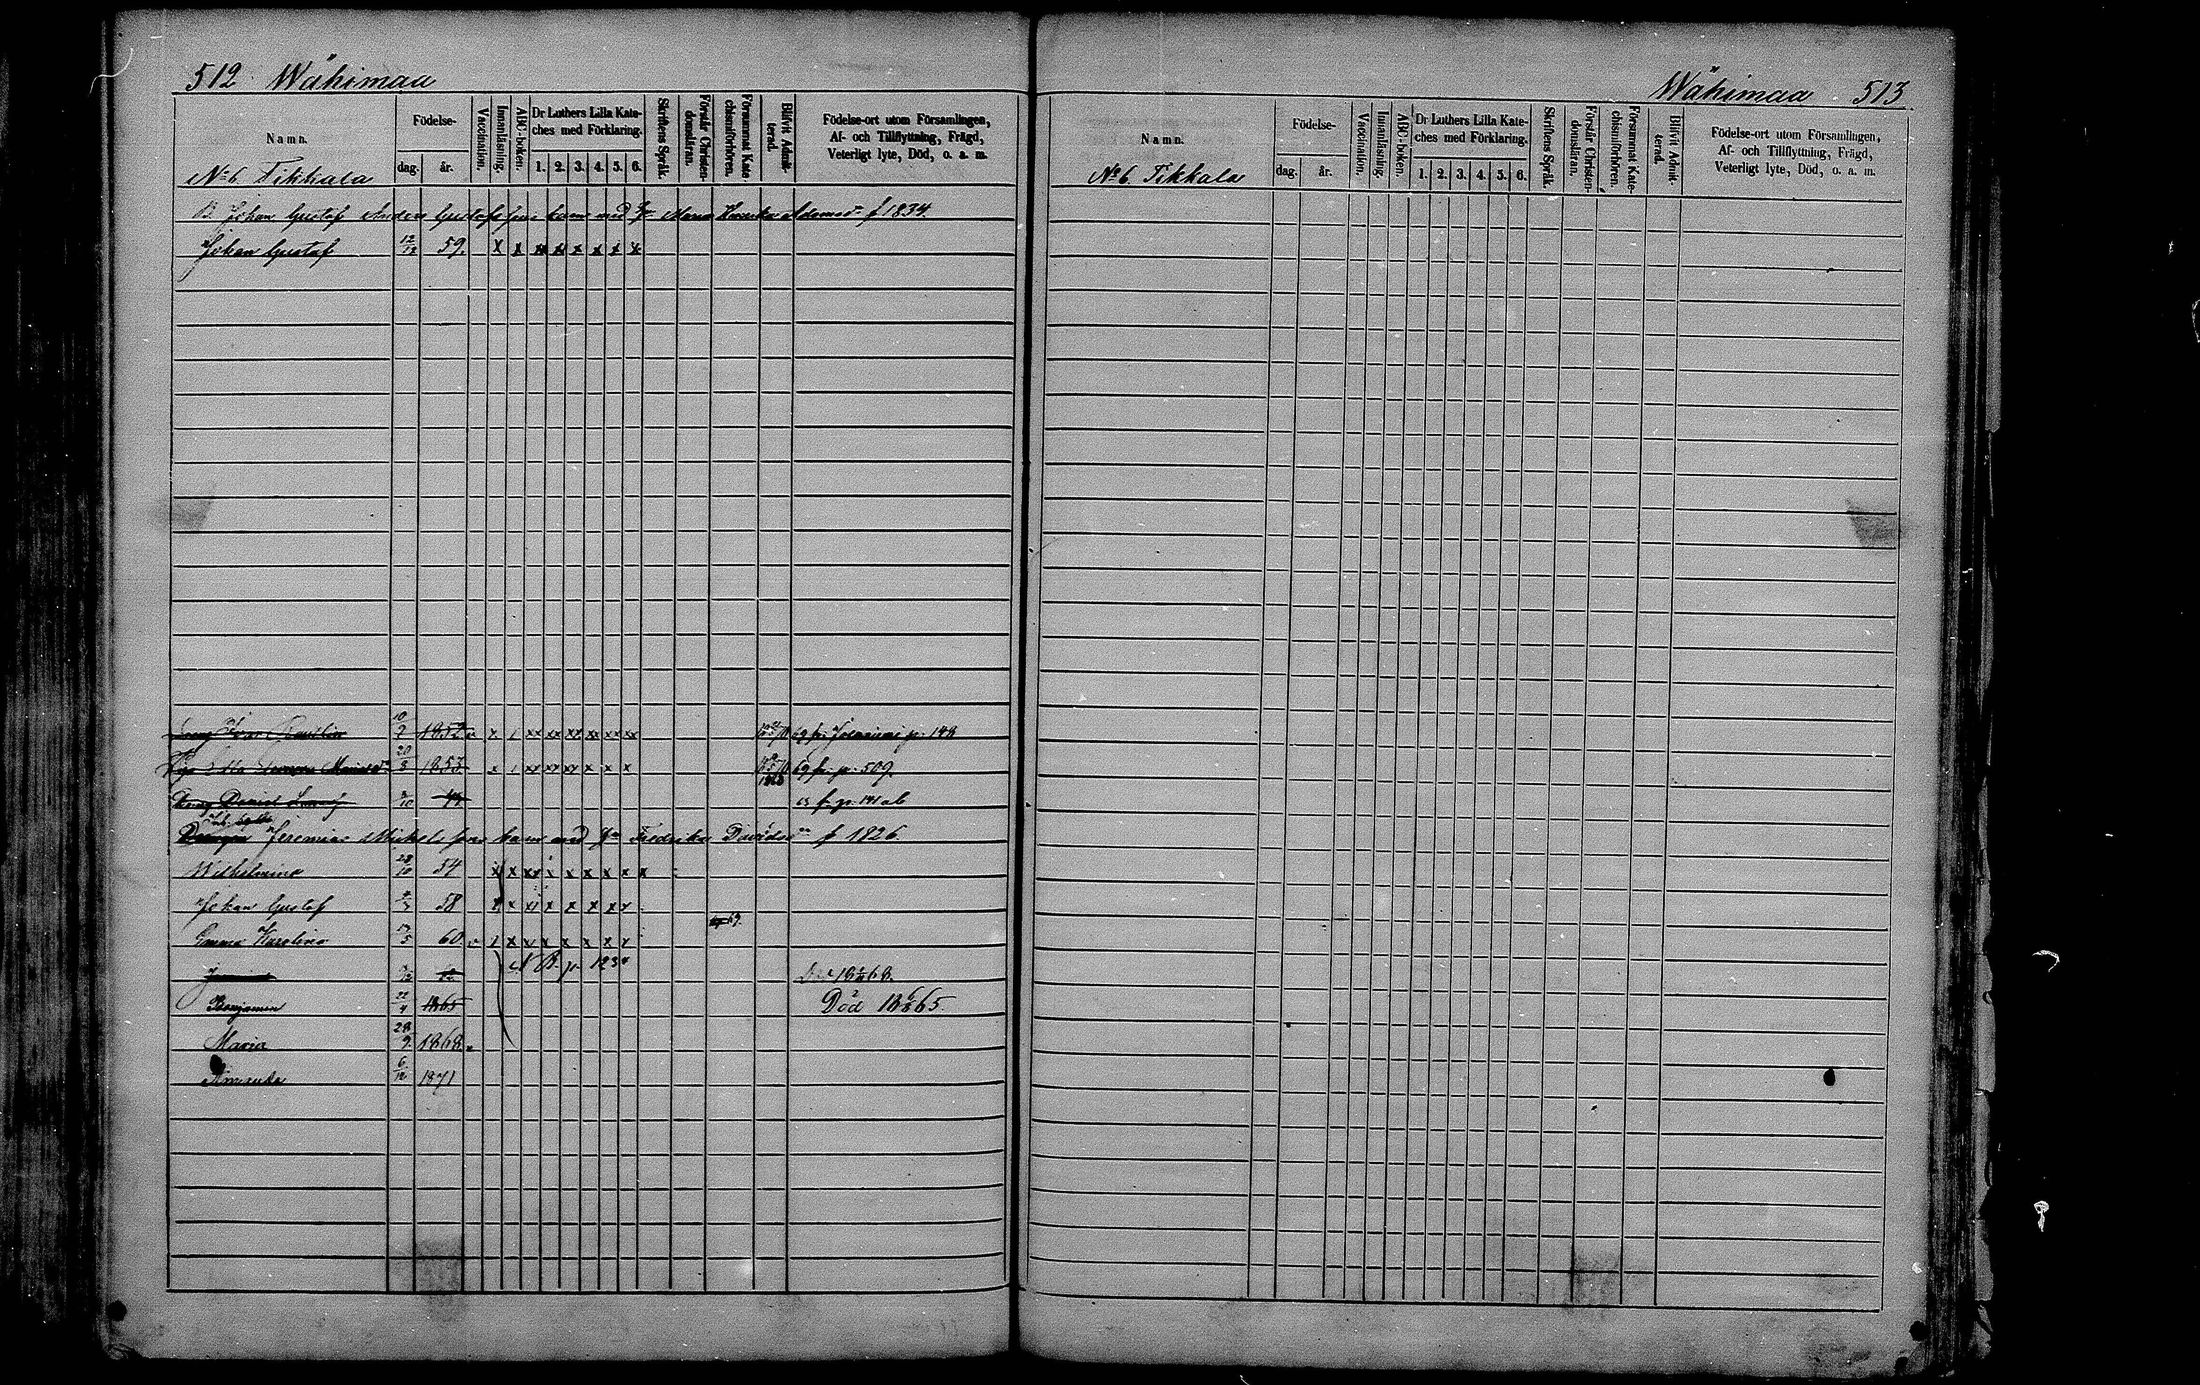 512 Wähimaa
Namn.
Födelse-
dag. år.
Vaccination.
Innanläsning.
ABC-boken.
Dr Luthers Lilla Kate-
ches med Förklaring.
1. 2. 3. 4. 5. 6.
Skriftens Språk.
Förstår Christen-
domsläran.
Försummat Kate-
chismiförhören.
Blifvit Admit-
terad.
Födelse-ort utom Församlingen,
Af- och Tillflyttning, Frägd,
Veterligt lyte, Död, o. a. m.
No 6. Tikkala
B. Johan Gustaf Anders Gustafs sons barn med Maria Adamsd. f 1834.
Johan Gustaf 12/12 59. x x xx xx x x x x
10/2 1852 x xx xx xx xx xx xx 69 fr. p. 148
20/8 1853 x xx xx xx x x x 1868 69 fr. p. 509.
Daniel /10 f. p. 141 ab
Jeremias Mickels sons barn med Fredrika Davidsd. f 1826
Wilhelmina 28/10 54 x x xx x x x x x x
Johan Gustaf 58 x x x x x x x x
Emma Karolina /5 60 x x x x x x x 69.
p. 1234
Död 68.
Benjamin 22/4 1865 Död 18 65.
Maria 28/9. 1868.
Amanda 6/12 1871
Wähimaa 513
Namn.
Födelse-
dag. år.
Vaccination.
Innanläsning.
ABC-boken.
Dr Luthers Lilla Kate-
ches med Förklaring.
1. 2. 3. 4. 5. 6.
Skriftens Språk.
Förstår Christen-
domsläran.
Försummat Kate-
chismiförhören.
Blifvit Admit-
terad.
Födelse-ort utom Församlingen,
Af- och Tillflyttning, Frägd,
Veterligt lyte, Död, o. a. m.
No 6. Tikkala